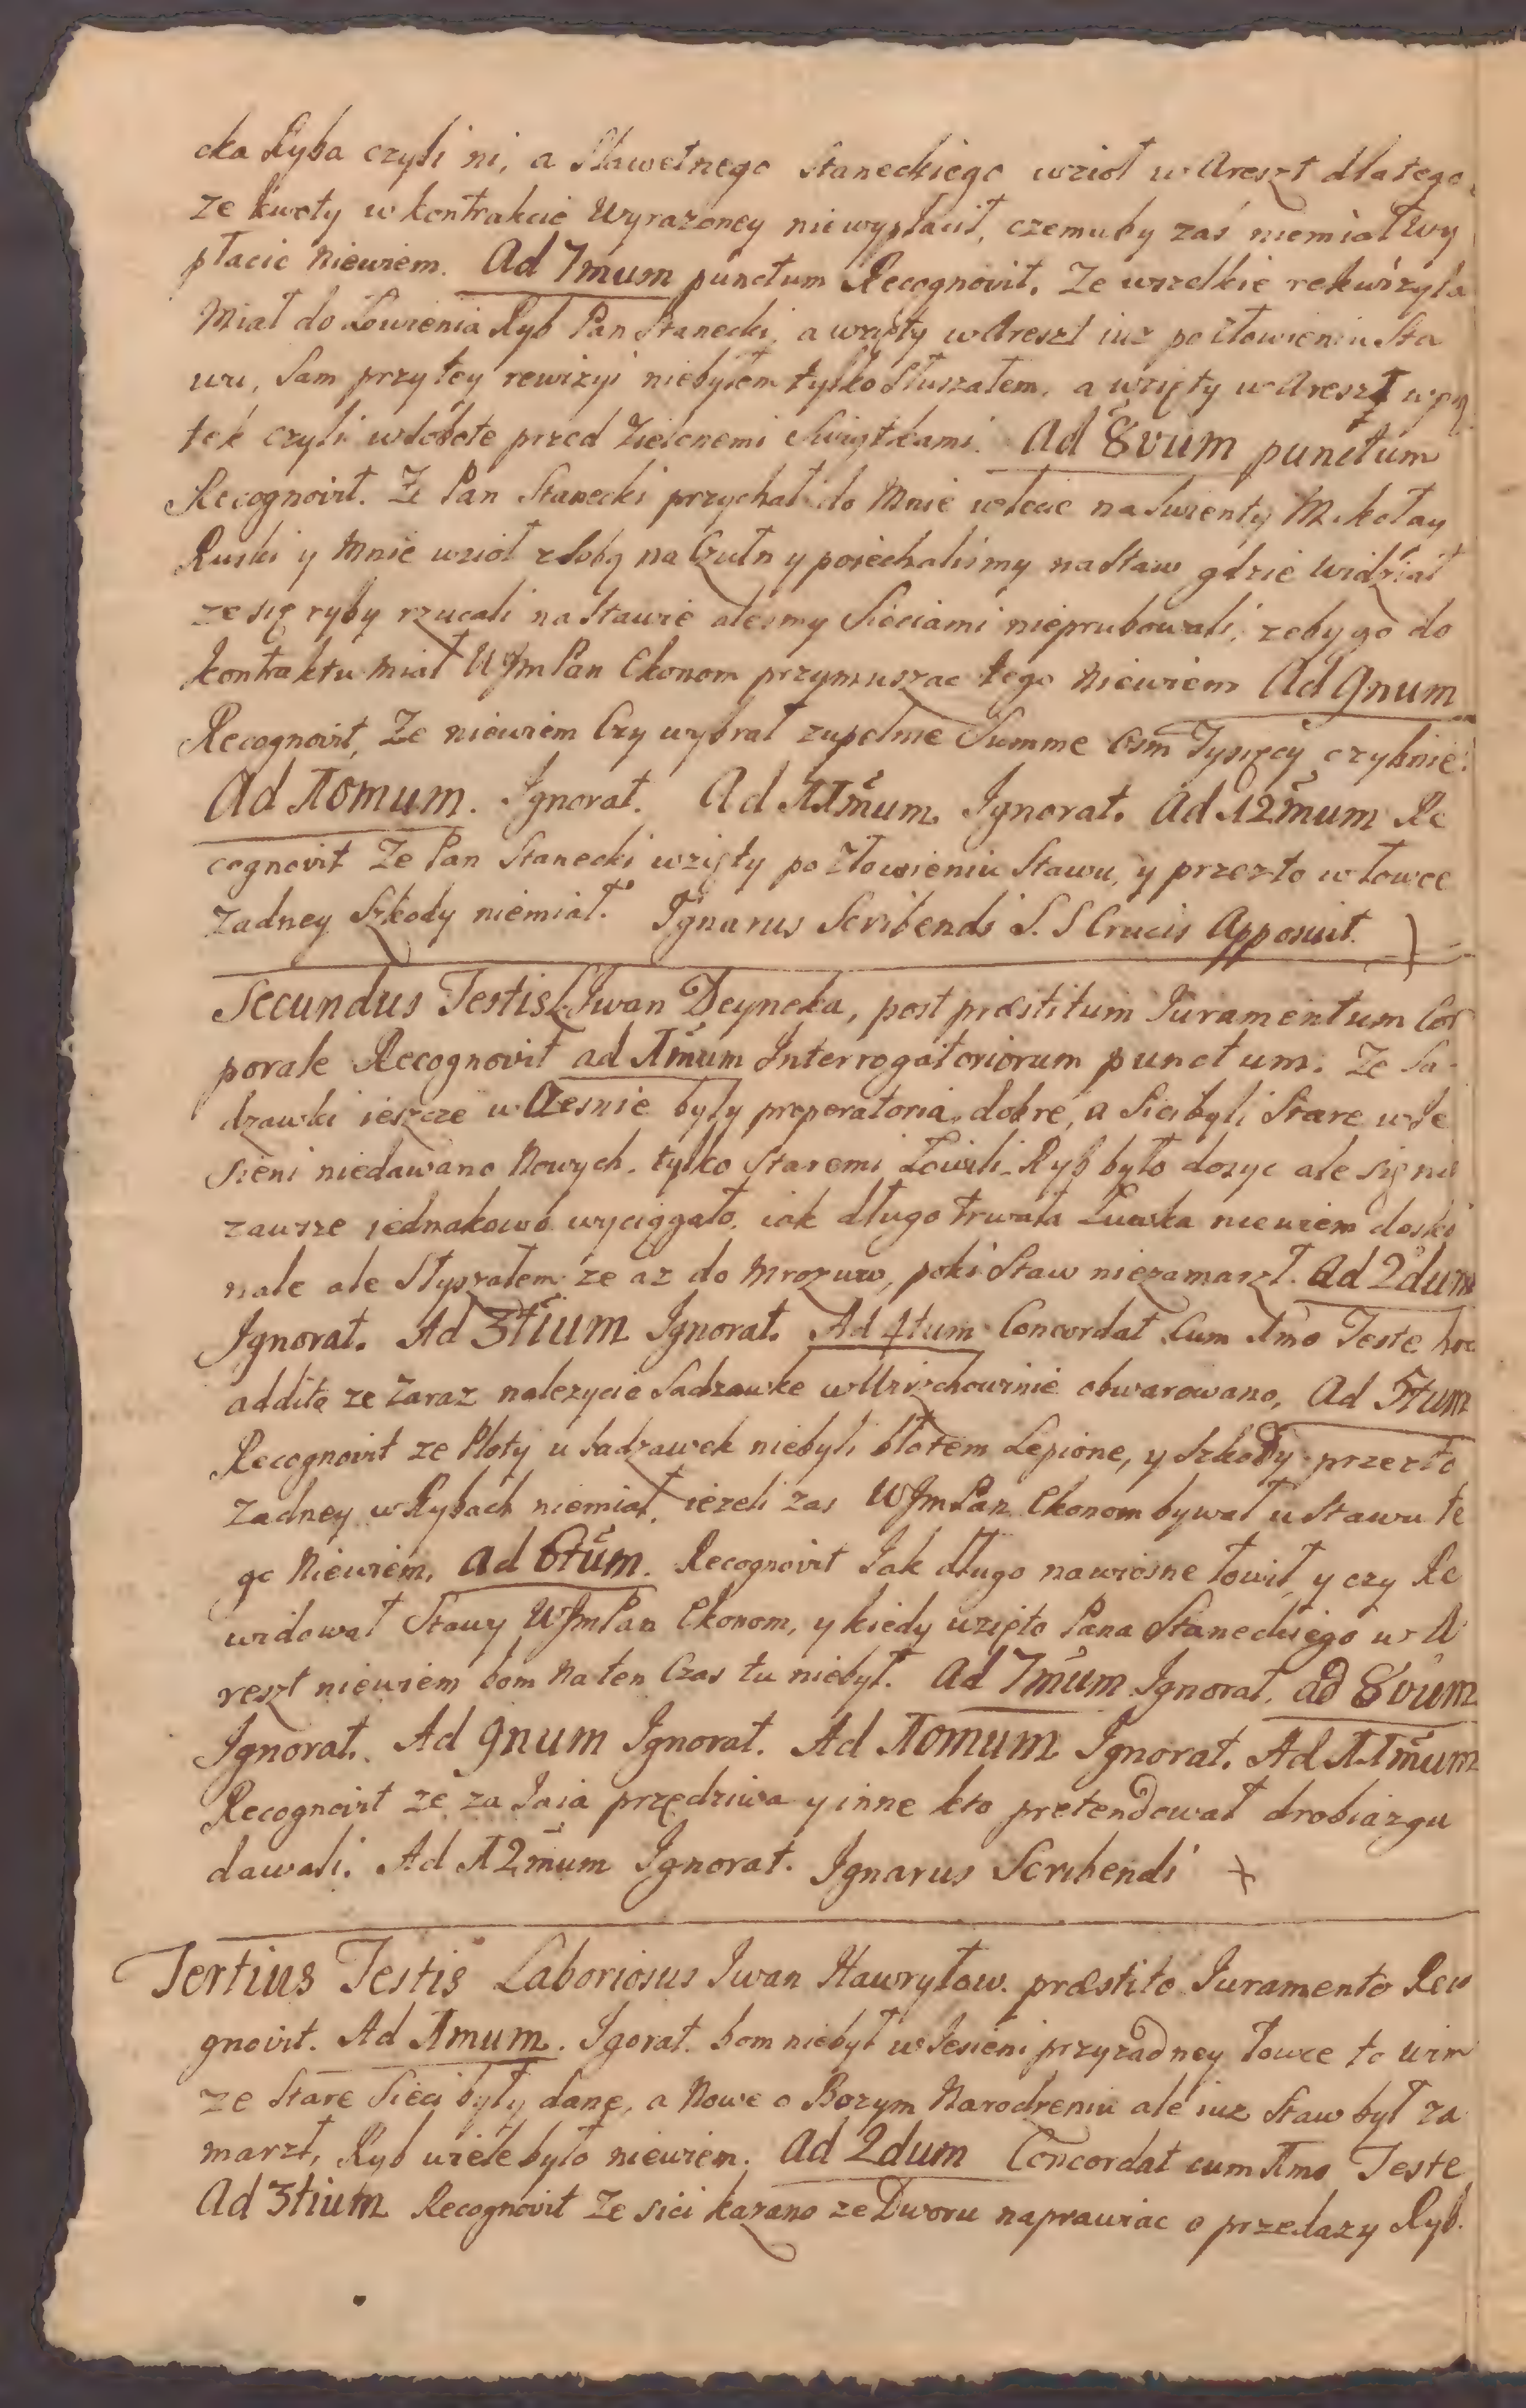 cka Ryba czyli ni, a Sławetnego Staneckiego wzioł w Areszt dlatego
ze kwoty w kontrakcie Wyrazoney niewypłacił, czemuby zaś niemiał wy
płacic Niewiem. Ad 7mum punctum Recognovit, Ze wszelkie rekwizyta
Miał do Łowienia Ryb Pan Stanecki, a wzięty w Areszt iuz po złowieniu Sta
wu, Sam przy tey rewizyi niebyłem tylko Słuszałem, a wzięty w Areszt w pią
tek czyli w Sobote przed Zielonemi Swiątkami. Ad 8vum punctum
Recognovit. Ze Pan Stanecki przychał do Mnie w lecie na Swienty Mikołay
Ruski y Mnie wzioł z Sobą na Czułn y poiechalismy na Staw gdzie widział
ze się ryby rzucali na Stawie alesmy Sieciami nieprubowali, zeby go do
kontraktu miał WJmPan Ekonom przymuszac tego Niewiem Ad 9num
Recognovit, Ze niewiem Czy wybrał zupełnie Summe Osm Tysięcy czylinie.
Ad 10mum. Ignorat. Ad 11mum. Ignorat. Ad 12mum Re
cognovit Ze Pan Stanecki wzięty po złowieniu Stawu, y przezto w łowce
Zadney Szkody niemiał. Ignarus Scribendi S. S Crucis Apposuit. +
Secundus Testis Iwan Deyneka, post præstitum Iuramentum Cor
porale Recognovit ad 1mum Interrogatoriorum punctum. Ze Sa-
dzawki ieszcze w Czesnie były preperatoria dobre, a Sieibyli Stare w Je
sieni niedawano Nowych, tylko Staremi Łowili Ryb było dosyc ale się nie
zawsze jednakowo wyciągało, iak długo trwała Łuwka niewiem dosko
nale ale Słyszałem ze az do Mrozuw, poki Staw niezamarzł. Ad 2dum
Ignorat. Ad 3tium Ignorat. Ad 4tum Concordat Cum 1mo Teste hoc
addito ze Zaraz nalezycie Sadzawke w obwarowano, Ad 5tum
Recognovit ze Płoty u Sadzawek niebyli błotem Lepione, y Szkody przezto
Zadney w Rybach niemiał, iezeli zas WJmPan Ekonom bywał u Stawu te
go Niewiem, Ad 6tum. Recognovit Jak długo nawiosne łowił y czy Re
widował Stawy WJmPan Ekonom, y kiedy wzięto Pana Staneckiego w A
reszt niewiem bom Naten Czas tu niebył. Ad 7mum Ignorat. ad 8vum
Ignorat. Ad 9num Ignorat. Ad 10mum Ignorat. Ad 11mum
Recognovit ze za Jaia przędziwa y inne kto pretendował drobiazgu
dawali. Ad 12mum Ignorat. Ignarus Scribendi +
Tertius Testis Laboriosus Iwan Hawryłow. præstito Iuramento Reco
gnovit. Ad 1mum. Igorat. bom niebył w Jesieni przyzadney łowce to wim
ze Stare Sieci były dane, a Nowe o Bozym Narodzeniu ale iuz Staw był za
marzł, Ryb wiele było niewiem. Ad 2dum Concordat cum 1mo Teste
Ad 3tium Recognovit Ze sici kazano ze Dworu naprawiac o przedazy Ryb.